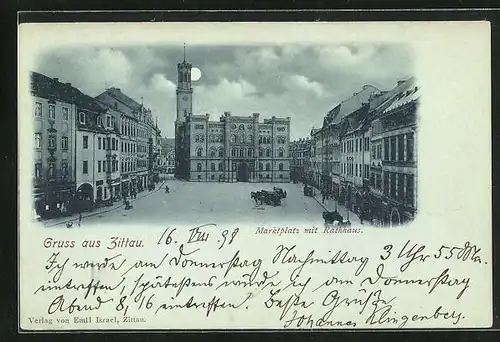 Gruss aus Zittau.
16. VIII 98
Marktplatz mit Rathhaus.
Ich werde am Donnerstag Nachmittag 3 Uhr 55 M.
eintreffen, spätestens würde ich am Donnerstag
Abend 8/16 eintreffen. Beste Grüße
Johannes Klingenberg.
Verlag von Emil Israel, Zittau.